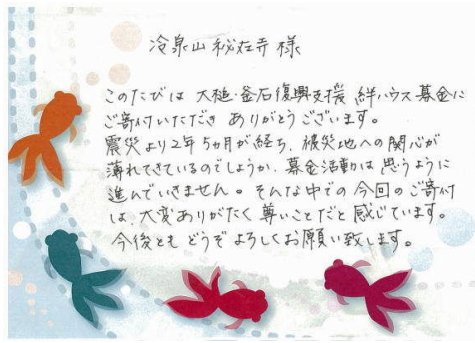 冷泉山 秘在寺 様
このたびは 大槌・釜石復興支援 絆ハウス募金に
ご寄付いただき ありがとうございます。
震災より2年5ヵ月が経ち、被災地への関心が
薄れてきているのでしょうか、募金活動は思うように
進んでいきません。そんな中での今回のご寄付
は、大変ありがたく尊いことだと感じています。
今後とも どうぞよろしくお願い致します。